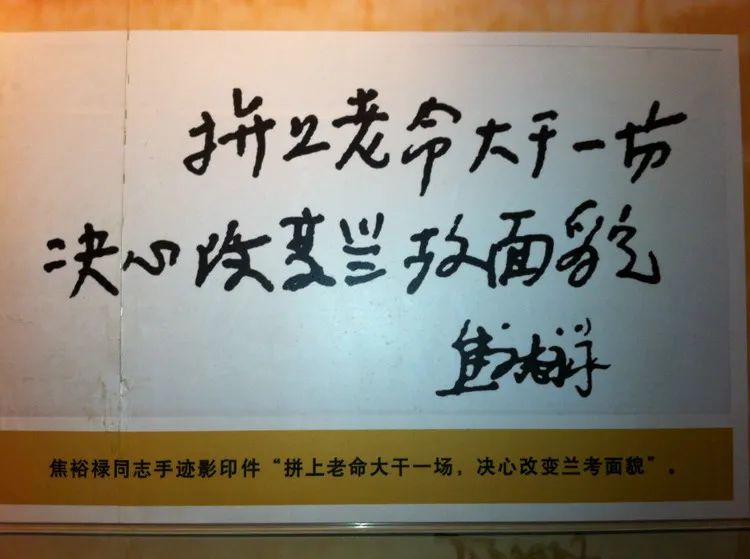 拼上老命大干一场
决心改变兰攷面貌
焦裕禄
焦裕禄同志手迹影印件“拼上老命大干一场，决心改变兰考面貌”。